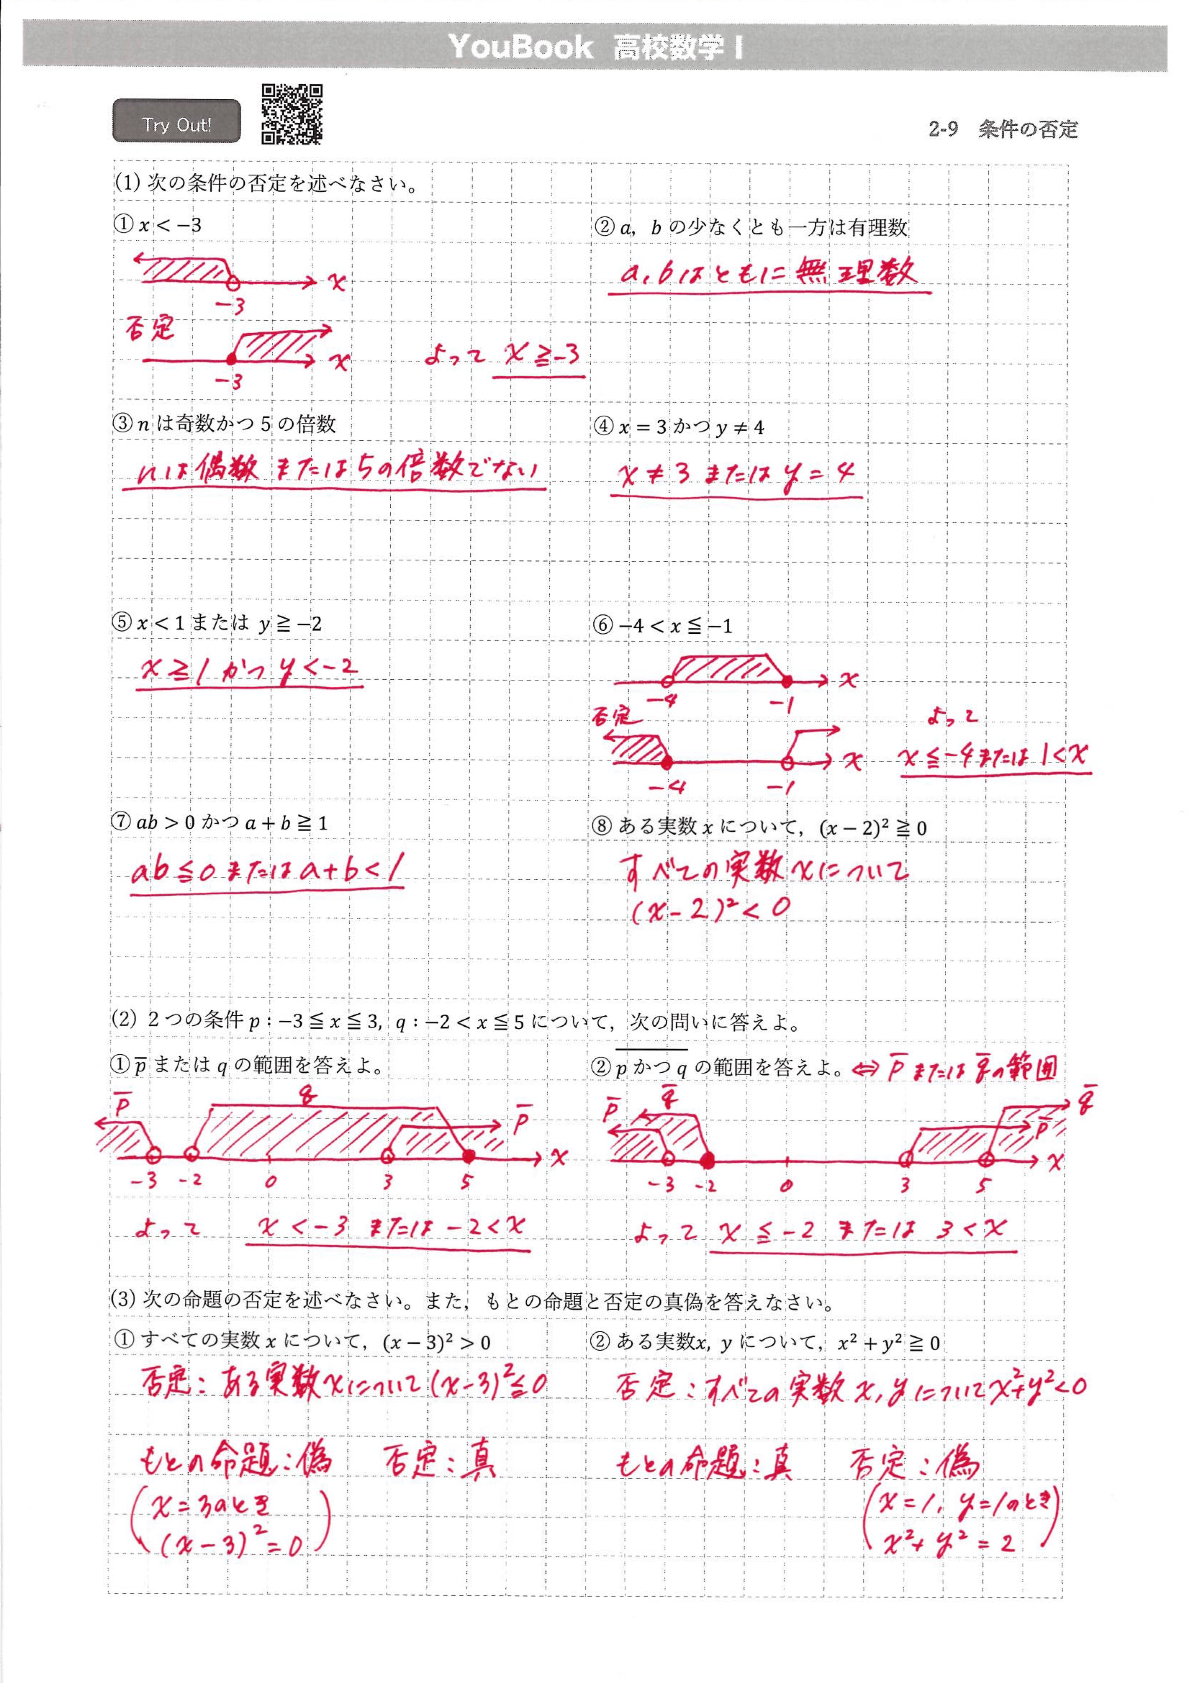 YouBook 高校数学 I
Try Out!
2-9 条件の否定
(1) 次の条件の否定を述べなさい。
① x < −3
x
−3
否定
x
−3
よって x ≧ −3
② a, b の少なくとも一方は有理数
a, b はともに無理数
③ n は奇数かつ 5 の倍数
nは偶数 または5の倍数でない
④ x = 3 かつ y ≠ 4
x ≠ 3 または y = 4
⑤ x < 1 または y ≧ −2
x ≧ 1 かつ y < −2
⑥ −4 < x ≦ −1
x
−4 −1
否定
x
−4 −1
よって
x ≦ −4 または 1 < x
⑦ ab > 0 かつ a + b ≧ 1
ab ≦ 0 または a + b < 1
⑧ ある実数 x について, (x − 2)² ≧ 0
すべての実数 x について
(x − 2)² < 0
(2) 2つの条件 p : −3 ≦ x ≦ 3, q : −2 < x ≦ 5 について, 次の問いに答えよ。
① p̅ または q の範囲を答えよ。
p̅ q p̅
x
−3 −2 0 3 5
よって x < −3 または −2 < x
② p かつ q の範囲を答えよ。⇔ p̅ または q̅ の範囲
p̅ q̅ p̅ q̅
x
−3 −2 0 3 5
よって x ≦ −2 または 3 < x
(3) 次の命題の否定を述べなさい。また, もとの命題と否定の真偽を答えなさい。
① すべての実数 x について, (x − 3)² > 0
否定 : ある実数 x について (x−3)² ≦ 0
もとの命題 : 偽 否定 : 真
(x = 3のとき
(x − 3)² = 0)
② ある実数x, y について, x² + y² ≧ 0
否定 : すべての実数 x, y について x²+y² < 0
もとの命題 : 真 否定 : 偽
(x = 1, y = 1のとき
x² + y² = 2)